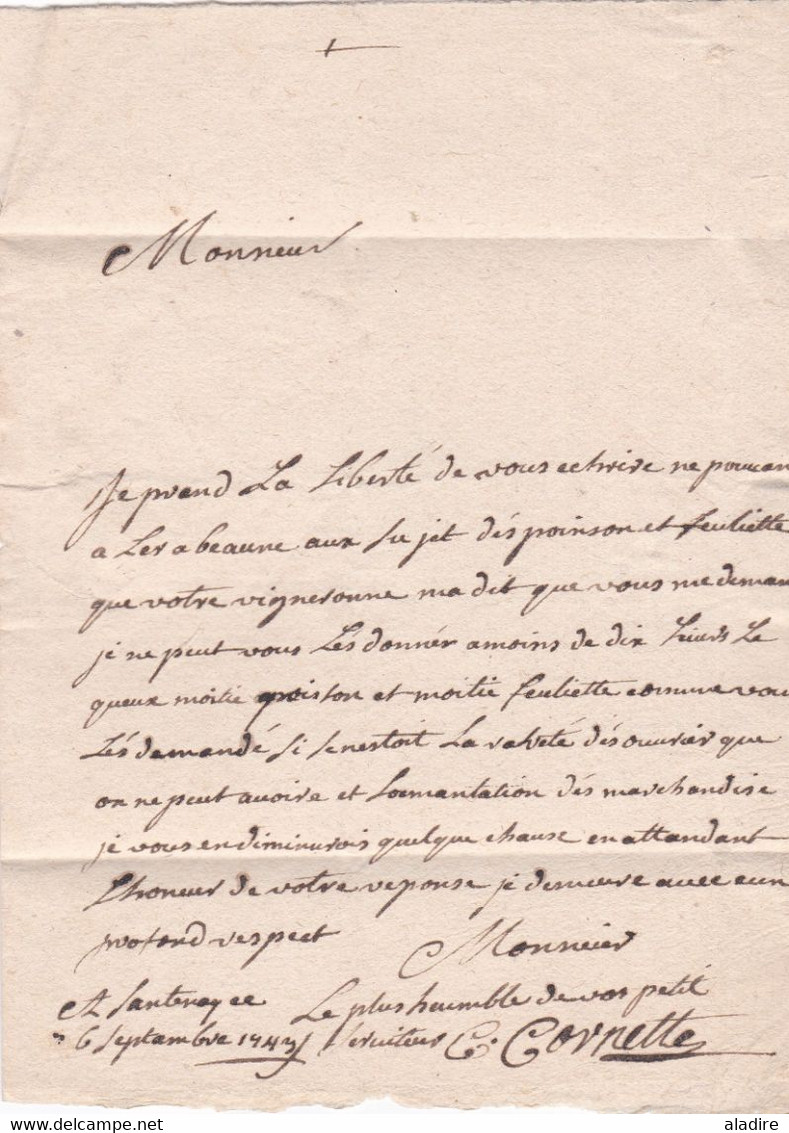 Monsieur
Je prend La Liberté de vous echrire ne pouvan
a Ler a beaune aux sujet dés poinson et feuliette
que votre vigneronne ma dit que vous me deman
je ne peut vous Lés donnér amoins de dix Livrs La
queux moitié poisson et moitié feuliette comme vou
Lés demandé si se nestoit La rareté dés ouvriér que
on ne peut avoire et Loemantation dés marchandise
je vous en diminurois quelque chause en attandant
Lhoneur de votre reponse je demeure avec eun
profond respect Monsieur
A Santenay ce Le plus humble de vos petit
6 Septambre 1743 serviteur C. Cornette
www.delcampe.net
aladire